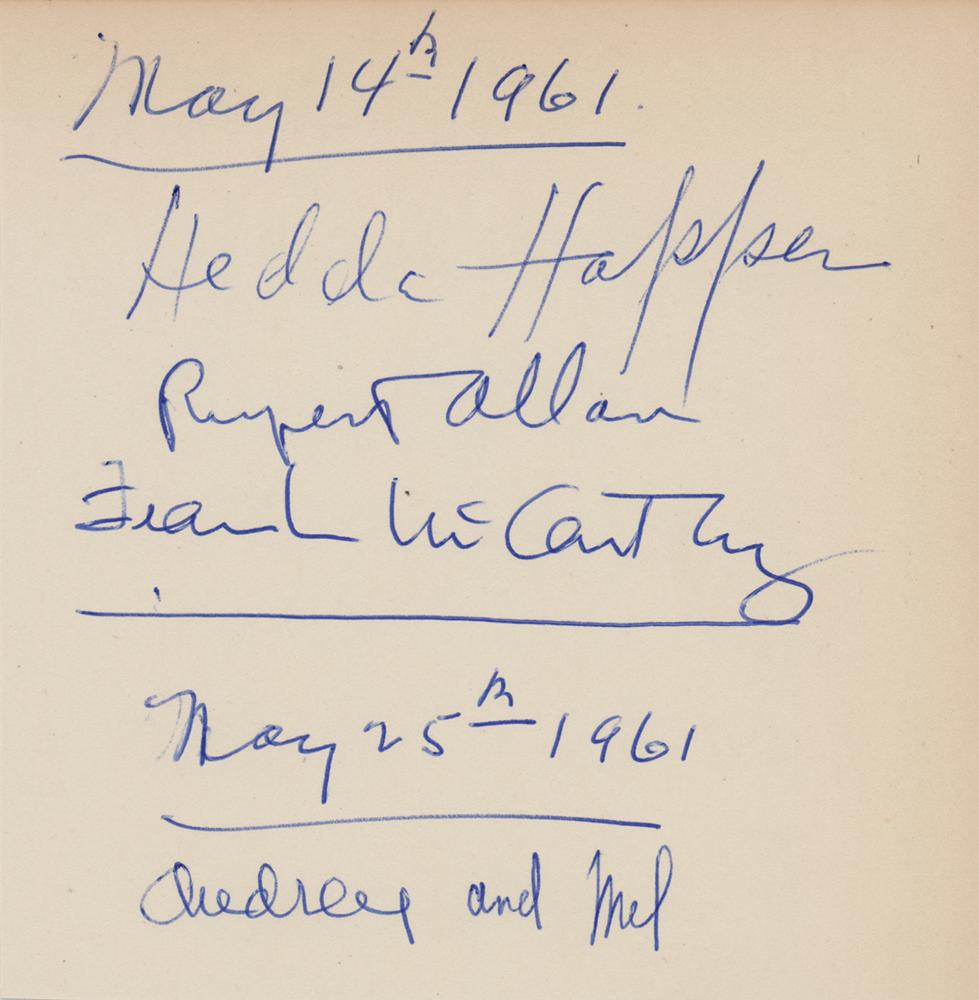 May 14th 1961.
Hedda Hopper
Rupert Allan
Frank McCarthy
May 25th 1961
Audrey and Mel